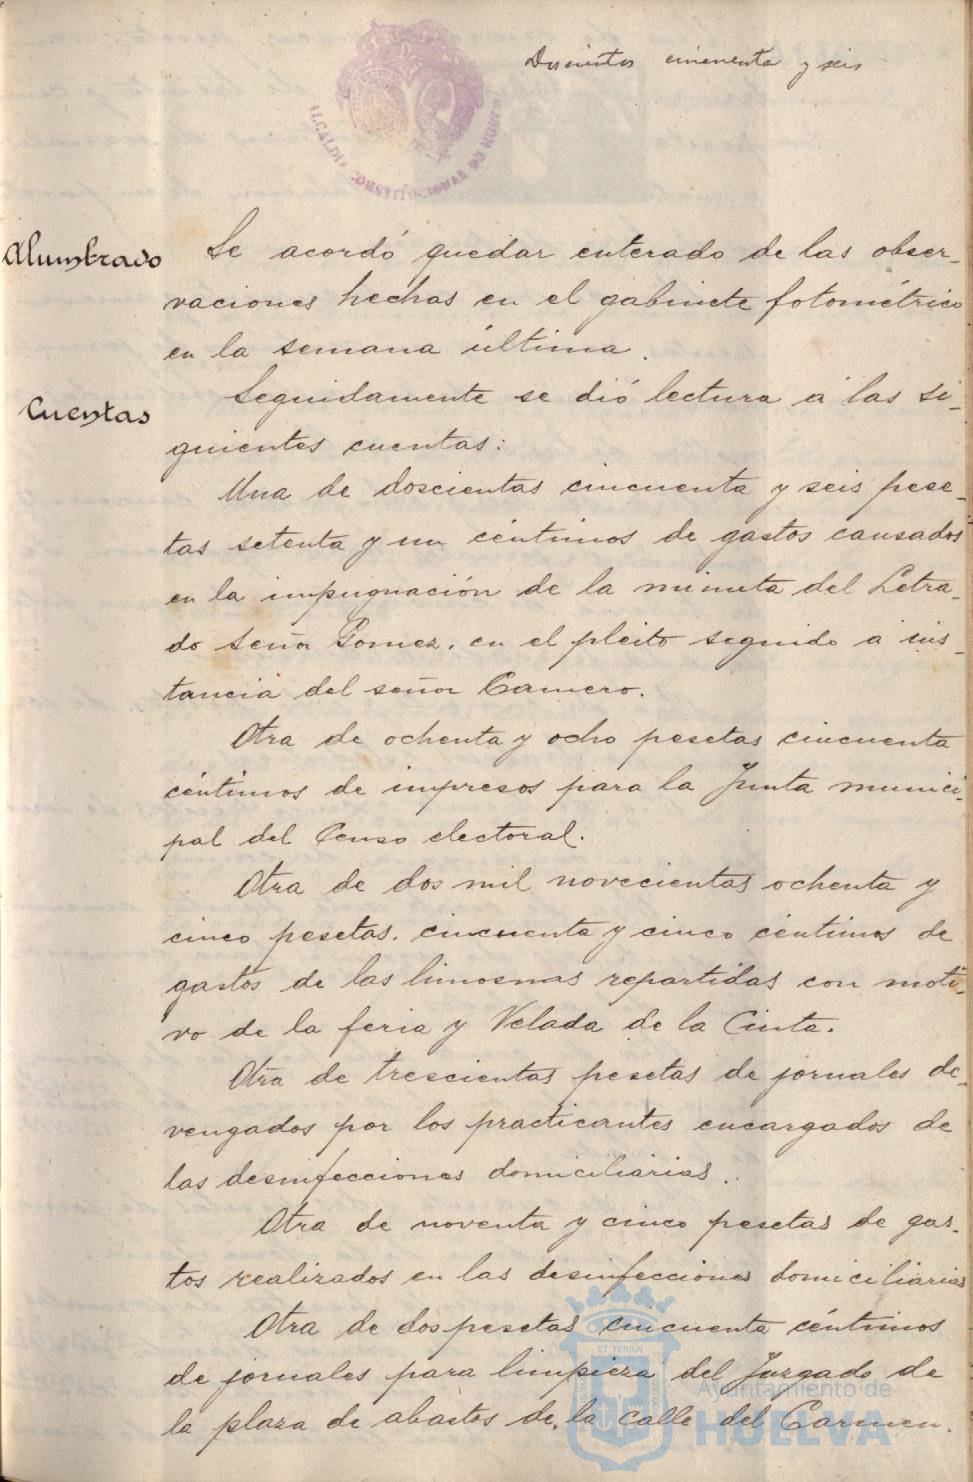 Doscientos cincuenta y seis
ALCALDIA CONSTITUCIONAL DE HUELVA
Alumbrado
Se acordó quedar enterado de las obser-
vaciones hechas en el gabinete fotométrico
en la semana última.
Cuentas
Seguidamente se dió lectura á las si-
guientes cuentas:
Una de doscientas cincuenta y seis pese-
tas setenta y un céntimos de gastos causados
en la impugnación de la minuta del Letra-
do señor Gomez, en el pleito seguido a ins-
tancia del señor Camero.
Otra de ochenta y ocho pesetas cincuenta
céntimos de impresos para la Junta munici-
pal del Censo electoral.
Otra de dos mil novecientas ochenta y
cinco pesetas, cincuenta y cinco céntimos de
gastos de las limosnas repartidas con moti-
vo de la feria y Velada de la Cinta.
Otra de trescientas pesetas de jornales de-
vengados por los practicantes encargados de
las desinfecciones domiciliarias.
Otra de noventa y cinco pesetas de gas-
tos realizados en las desinfecciones domiciliarias
Otra de dos pesetas cincuenta céntimos
de jornales para limpieza del Juzgado de
la plaza de abastos de la calle del Carmen.
Ayuntamiento de
HUELVA